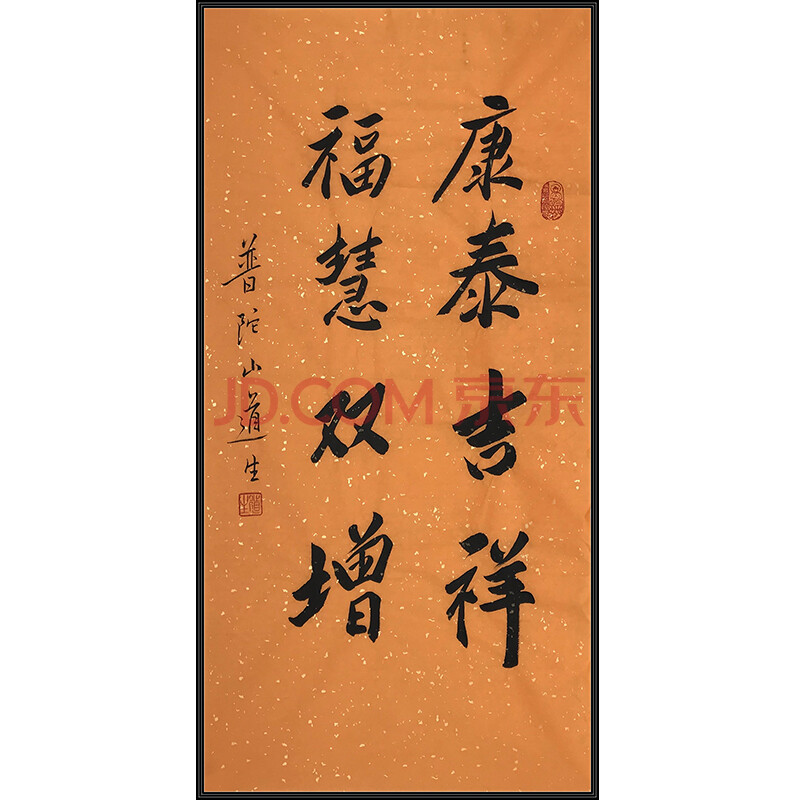 康泰吉祥
福慧双增
普陀山道生
JD.COM 京东